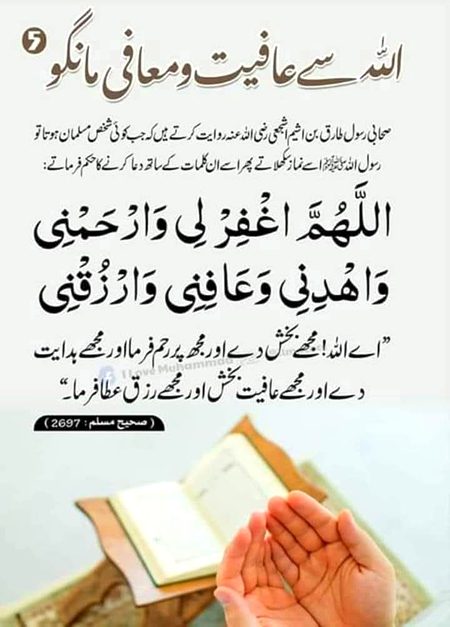 اللہ سے عافیت و معافی مانگو
5
صحابی رسول طارق بن اشیم اشجعی رضی اللہ عنہ روایت کرتے ہیں کہ جب کوئی شخص مسلمان ہوتا تو
رسول اللہ ﷺ اسے نماز سکھلاتے پھر اسے ان کلمات کے ساتھ دعا کرنے کا حکم فرماتے:
اللَّهُمَّ اغْفِرْ لِي وَارْحَمْنِي
وَاهْدِنِي وَعَافِنِي وَارْزُقْنِي
”اے اللہ! مجھے بخش دے اور مجھ پر رحم فرما اور مجھے ہدایت
دے اور مجھے عافیت بخش اور مجھے رزق عطا فرما۔“
I Love Muhammad
(صحیح مسلم: 2697)